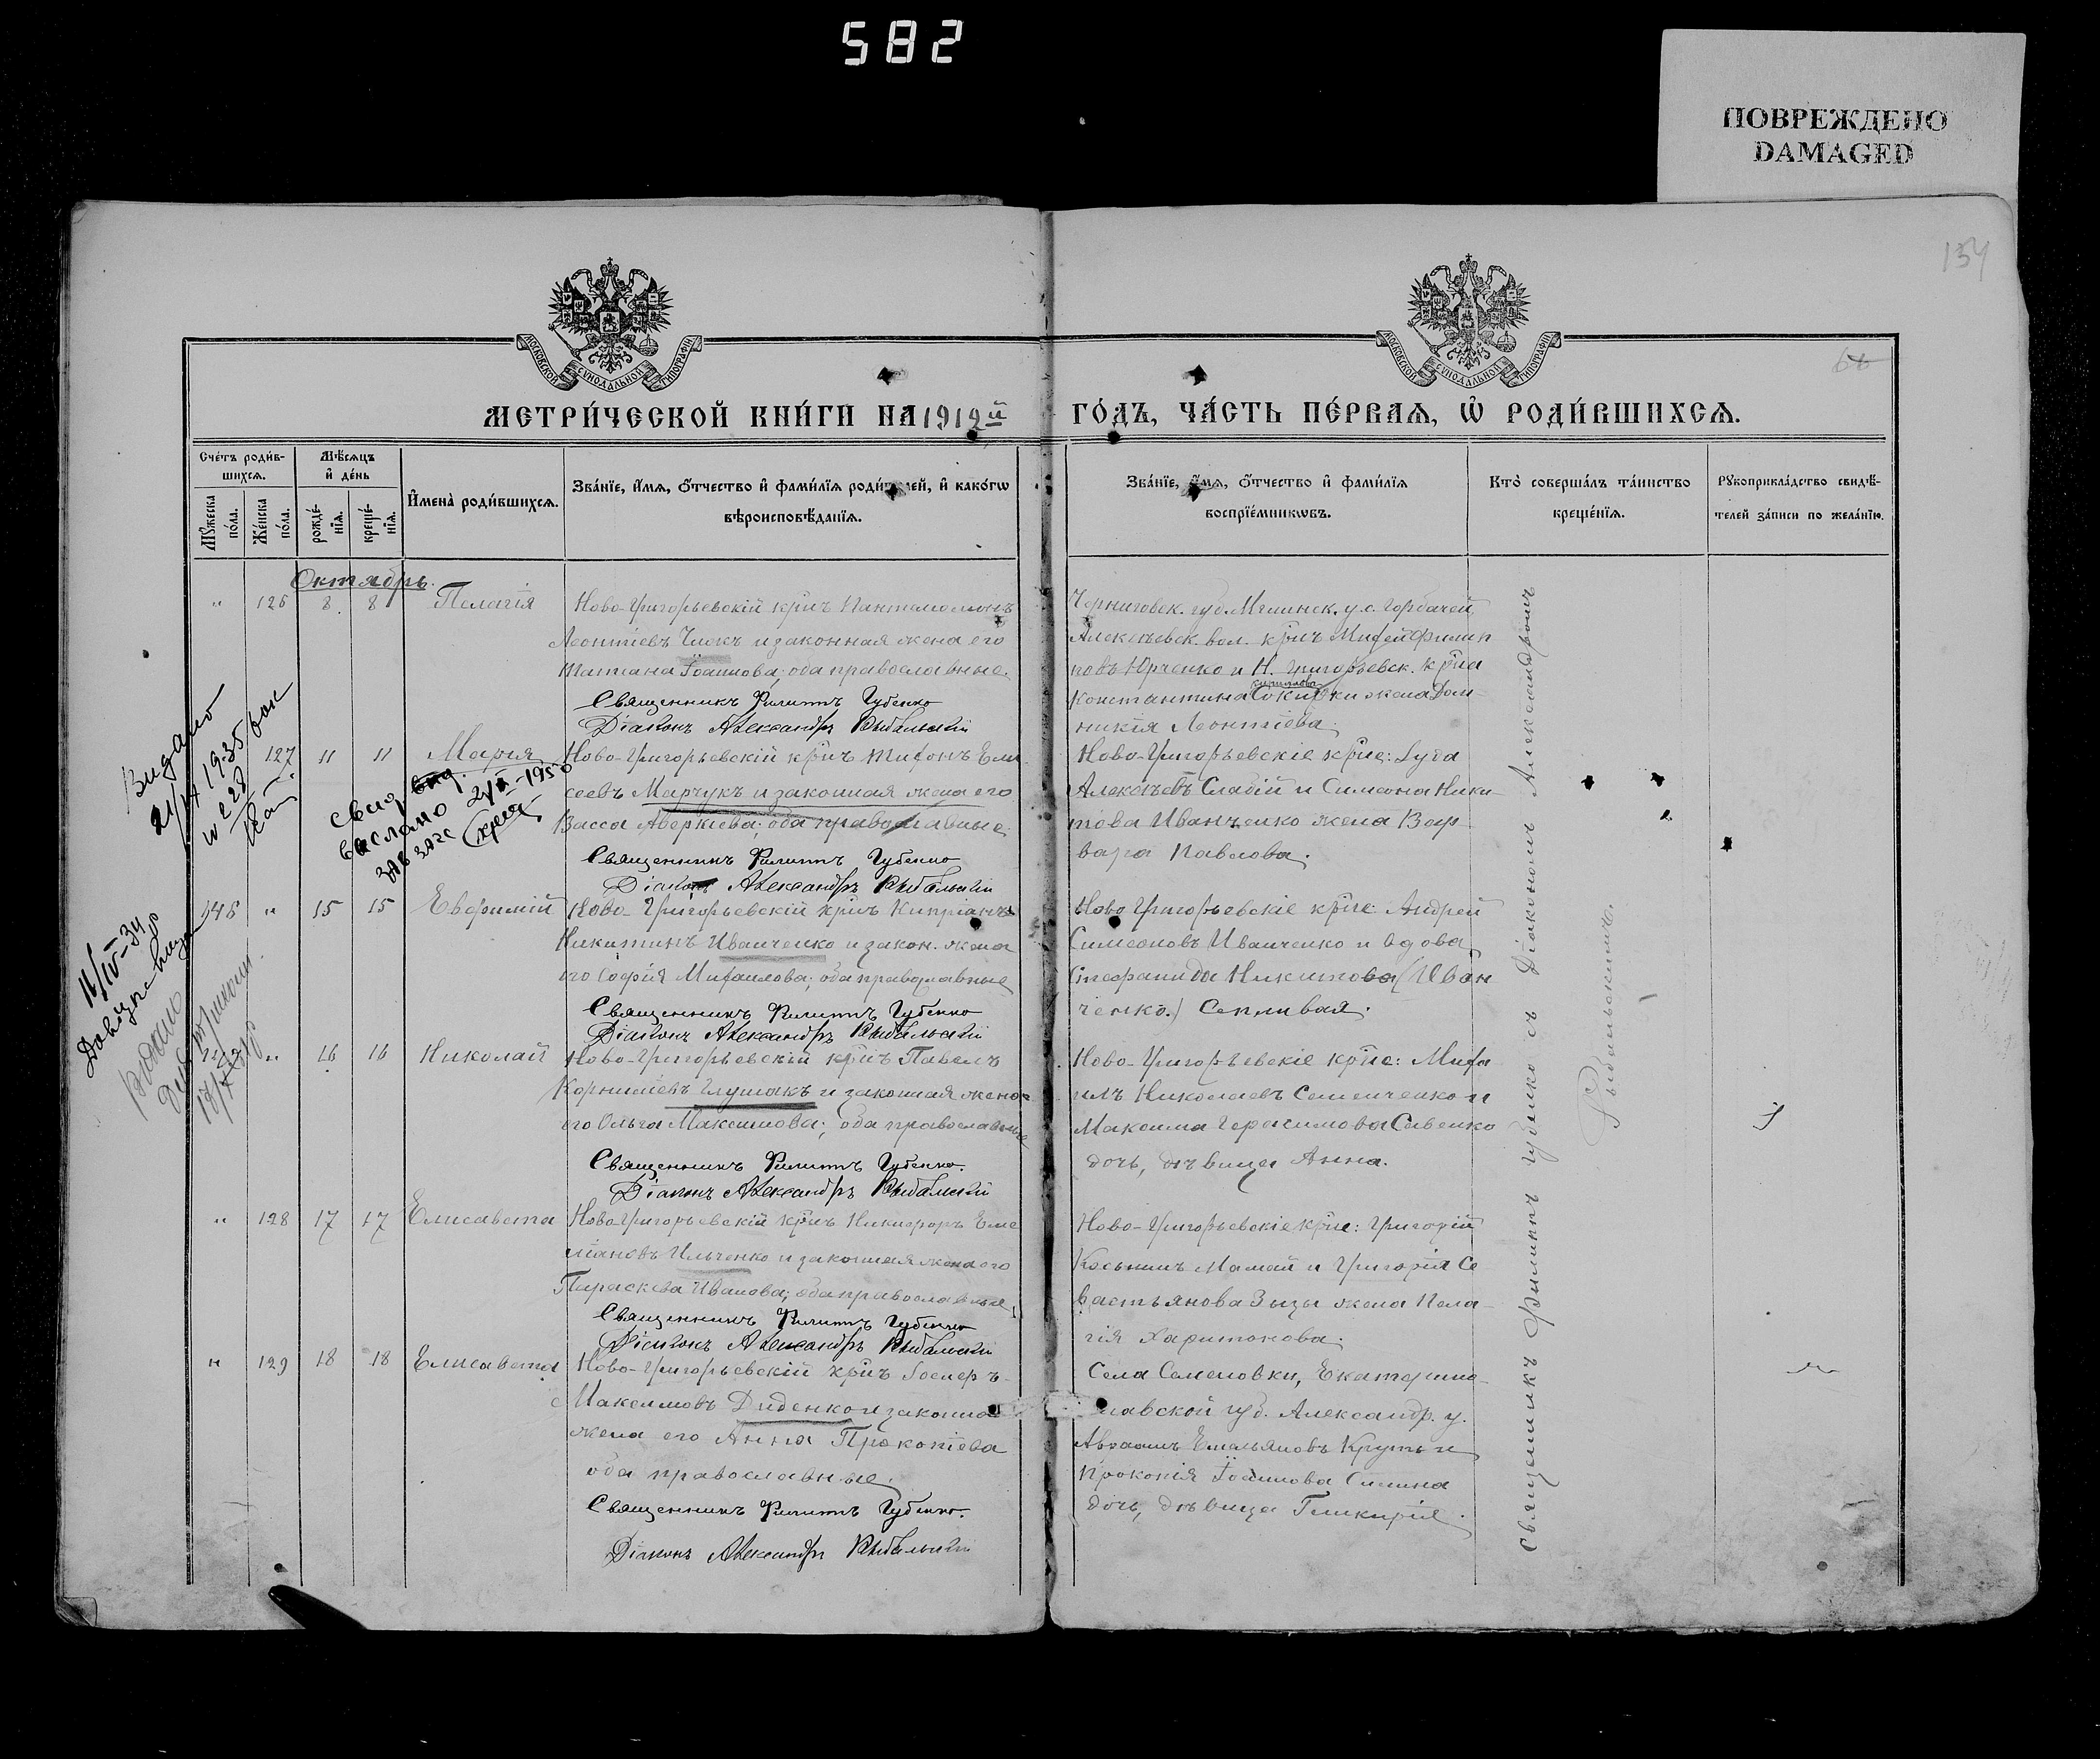 582
ПОВРЕЖДЕНО
DAMAGED
134
МОСКОВСКОЙ СУНОДАЛЬНОЙ ТИПОГРАФІИ
МОСКОВСКОЙ СУНОДАЛЬНОЙ ТИПОГРАФІИ
МЕТРИ́ЧЕСКОЙ КНИ́ГИ НА 1912й ГО́ДЪ, ЧА́СТЬ ПЕ́РВАЯ, Ѿ РОДИ́ВШИХСЯ.
Сче́тъ роди́в-
шихся.
Мѣ́сяцъ
и҆ де́нь
Мꙋ́жеска по́ла.
Же́нска по́ла.
рожде́-
нїя.
креще́-
нїя.
И҆мена̀ роди́вшихся.
Зва́нїе, и҆́мя, ѻ҆́тчество и҆ фами́лїя роди́телей, и҆ како́гѡ
вѣроисповѣ́данїя.
Зва́нїе, и҆́мя, ѻ҆́тчество и҆ фами́лїя
воспрїе́мникѡвъ.
Кто̀ соверша́лъ та́инство
креще́нїя.
Рꙋкоприкла́дство свидѣ́-
телей за́писи по жела́нїю.
Октябрь.
" 126 8 8 Пелагія
Ново-Григорьевскій кр͠нъ Пантелеимонъ
Леонтіевъ Чижъ и законная жена его
Татіана Іоаннова; оба православные.
Священникъ Филиппъ Губенко
Діаконъ Александръ Рыбальскій
Черниговск. губ. Мглинск. у. с. Горбачей
Алексѣевск. вол. кр͠нъ Михей Филип
повъ Юрченко и Н. Григорьевск. кр͠на
Константина Сокирки жена Дом-
никія Леонтіева.
127 11 11 Марія
Ново-Григорьевскій кр͠нъ Тихонъ Ели-
сеевъ Марчукъ и законная жена его
Васса Аверкіева; оба православные.
Священникъ Филиппъ Губенко
Діаконъ Александръ Рыбальскій
Ново-Григорьевскіе кр͠не: Лука
Алексѣевъ Слабій и Симеона Ники-
това Иванченко жена Вар-
вара Павлова.
Видано
21/VI 1935 рок
N 228
выслано
146 " 15 15 Евфимій
Ново-Григорьевскій кр͠нъ Кипріанъ
Никитинъ Иванченко и закон. жена
его Софія Михаилова; оба православные
Священникъ Филиппъ Губенко
Діаконъ Александръ Рыбальскій
Ново Григорьевскіе кр͠не: Андрей
Симеоновъ Иванченко и вдова
Стефанида Никитова (Иван
ченко.) Сепливая.
11/IV-34
Видано
" 16 16 Николай
Ново-Григорьевскій кр͠нъ Павелъ
Корниліевъ Глушакъ и законная жена
его Ольга Максимова; оба православные
Священникъ Филиппъ Губенко.
Діаконъ Александръ Рыбальскій
Ново-Григорьевскіе кр͠не: Миха
илъ Николаевъ Семенченко и
Максима Герасимова Савенко
дочь, дѣвица Анна.
" 128 17 17 Елисавета
Ново-Григорьевскій кр͠нъ Никифоръ Еме
ліановъ Ильченко и законная жена его
Параскева Иванова; оба православные.
Священникъ Филиппъ Губенко
Діаконъ Александръ Рыбальскій
Ново-Григорьевскіе кр͠не: Григорій
Косьминъ Мамай и Григорія Се
вастьянова Зызы жена Пела-
гія Харитонова.
" 129 18 18 Елисавета
Ново-Григорьевскій кр͠нъ
Максимовъ Диденко и законная
жена его Анна Прокопіева
оба православные.
Священникъ Филиппъ Губенко.
Діаконъ Александръ Рыбальскій
Села Семеновки, Екатерино-
славской губ. Александр. у.
Авраамъ Емельяновъ Круть и
Прокопія Іоаннова Силина
дочь, дѣвица Гликерія.
Священникъ Филиппъ Губенко съ Діакономъ Александромъ
Рыбальскимъ.